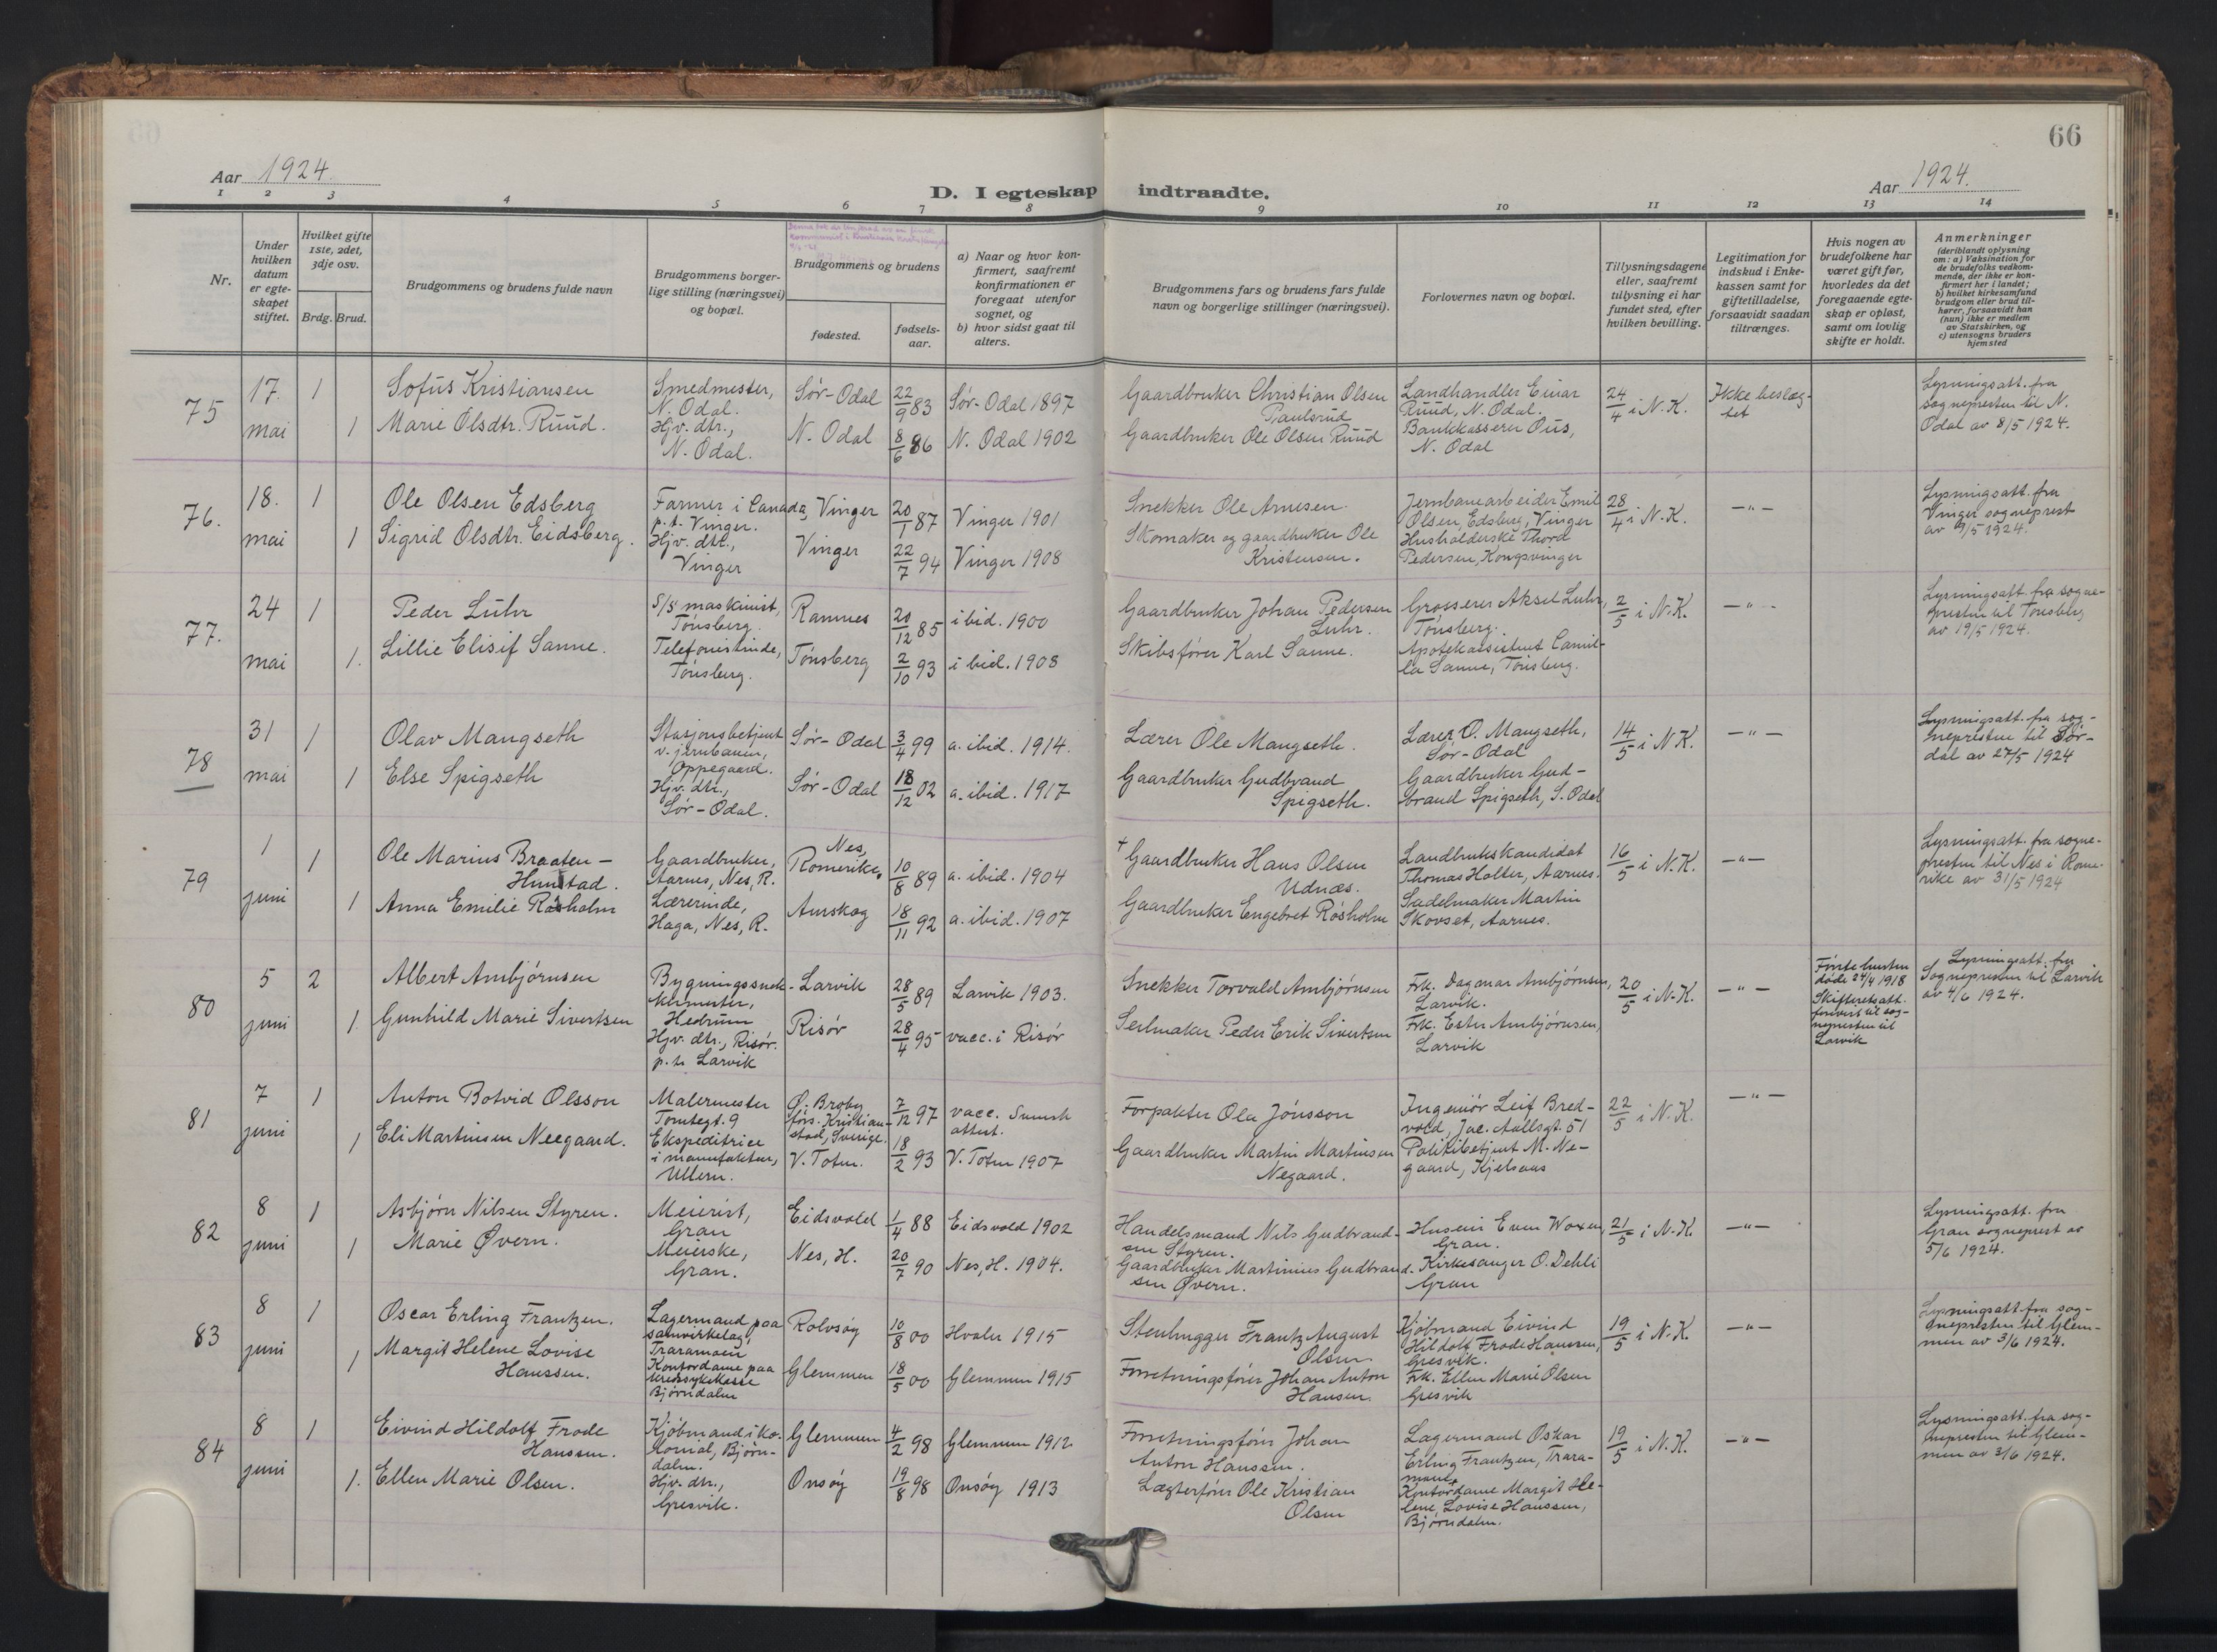 66
Aar 1924.
D. I egteskap indtraadte.
Aar 1924.
1 2 3 4 5 6 7 8 9 10 11 12 13 14
Nr.
Under hvilken datum er egteskapet stiftet.
Hvilket gifte 1ste, 2det, 3dje osv.
Brdg. Brud.
Brudgommens og brudens fulde navn
Brudgommens borgerlige stilling (næringsvei) og bopæl.
Brudgommens og brudens
fødested.
fødselsaar.
a) Naar og hvor konfirmert, saafremt konfirmationen er foregaat utenfor sognet, og
b) hvor sidst gaat til alters.
Brudgommens fars og brudens fars fulde navn og borgerlige stillinger (næringsvei).
Forlovernes navn og bopæl.
Tillysningsdagene eller, saafremt tillysning ei har fundet sted, efter hvilken bevilling.
Legitimation for indskud i Enkekassen samt for giftetilladelse, forsaavidt saadan tiltrænges.
Hvis nogen av brudefolkene har været gift før, hvorledes da det foregaaende egteskap er opløst, samt om lovlig skifte er holdt.
Anmerkninger
(deriblandt oplysning om: a) Vaksination for de brudefolks vedkommende, der ikke er konfirmert her i landet; b) hvilket kirkesamfund brudgom eller brud tilhører, forsaavidt han (hun) ikke er medlem av Statskirken, og c) utensogns bruders hjemsted
75
17. mai
1
Sofus Kristiansen
Smedmester, N. Odal.
Sør-Odal
22/9 83
Sør-Odal 1897
Gaardbruker Christian Olsen Paulsrud
Landhandler Einar Ruud, N. Odal.
24/4 i N.K.
Ikke beslægtet
Lysningsatt. fra sognepresten til N. Odal av 8/5 1924.
1
Marie Olsdtr. Ruud.
Hjv. dtr., N. Odal.
N. Odal
8/6 86
N. Odal 1902
Gaardbruker Ole Olsen Ruud
Bankkasserer Ous, N. Odal
76.
18. mai
1
Ole Olsen Edsberg
Farmer i Canada, p.t. Vinger.
Vinger
20/1 87
Vinger 1901
Snekker Ole Arnesen.
Jernbanearbeider Emil Olsen, Edsberg, Vinger
28/4 i N.K.
-"-
Lysningsatt. fra Vinger sogneprest av 9/5 1924.
1
Sigrid Olsdtr. Eidsberg.
Hjv. dtr., Vinger
Vinger
22/7 94
Vinger 1908
Skomaker og gaardbruker Ole Kristensen.
Husholderske Thora Pedersen, Kongsvinger
77.
24 mai
1
Peder Luhr
S/S maskinist, Tønsberg.
Ramnes
20/12 85
ibid. 1900
Gaardbruker Johan Pedersen Luhr.
Grosserer Aksel Luhr, Tønsberg.
2/5 i N.K.
-"-
Lysningsatt. fra sognepresten til Tønsberg av 19/5 1924.
1.
Lillie Elisif Sanne.
Telefonistinde, Tønsberg.
Tønsberg
2/10 93
ibid. 1908
Skibsfører Karl Sanne.
Apotekassistent Camilla Sanne, Tønsberg.
78
31 mai
1
Olav Mangseth
Stasjonsbetjent v. jernbanen, Oppegaard.
Sør-Odal
3/4 99
a. ibid. 1914.
Lærer Ole Mangseth.
Lærer O. Mangseth, Sør-Odal
14/5 i N.K.
-"-
Lysningsatt. fra sognepresten til Sørdal av 27/5 1924
1
Else Spigseth
Hjv. dtr., Sør-Odal.
Sør-Odal
18/12 02
a. ibid. 1917
Gaardbruker Gudbrand Spigseth.
Gaardbruker Gudbrand Spigseth, S. Odal
79
1 juni
1
Ole Marius Braaten-Hunstad.
Gaardbruker, Aarnes, Nes, R.
Nes, Romerike,
10/8 89
a. ibid. 1904
+ Gaardbruker Hans Olsen Udnæs.
Landbrukskandidat Thomas Holter, Aarnes.
16/5 i N.K.
-"-
Lysningsatt. fra sognepresten til Nes i Romerike av 31/5 1924
1
Anna Emilie Røsholm
Lærerinde, Haga, Nes, R.
Aurskog
18/11 92
a. ibid. 1907
Gaardbruker Engebret Røsholm
Sadelmaker Martin Skovset, Aarnes.
80
5 juni
2
Albert Ambjørnsen
Bygningssnekkermester, Hedrum
Larvik
28/5 89
Larvik 1903.
Snekker Torvald Ambjørnsen
Frk. Dagmar Ambjørnsen, Larvik.
20/5 i N.K.
-"-
Første hustru døde 24/4 1918 Skifteretsatt. forevist til sognepresten til Larvik
Lysningsatt. fra Sognepresten til Larvik av 4/6 1924.
1.
Gunhild Marie Sivertsen
Hjv. dtr., Risør. p.t. Larvik
Risør
28/4 95
vacc. i Risør
Seilmaker Peder Erik Sivertsen
Frk. Ester Ambjørnsen, Larvik
81
7 juni
1
Anton Botvid Olsson
Malermester Tomtegt. 9
Ø. Broby førs. Kristianstad, Sverige.
7/12 97
vacc. Svensk attest.
Forpakter Ola Jönsson
Ingeniør Leif Bredvold, Jac. Aallsgt. 51
22/5 i N.K.
-"-
1
Eli Martinsen Neegaard.
Ekspeditrice i manufaktur, Ullern.
V. Toten.
18/2 93
V. Toten 1907
Gaardbruker Martin Martinsen Negaard.
Politibetjent M. Negaard, Kjelsaas
82
8 juni
1
Asbjørn Nilsen Styren.
Meierist, Gran
Eidsvold
1/4 88
Eidsvold 1902
Handelsmand Nils Gudbrandsen Styren.
Huseier Even Woxen, Gran.
21/5 i N.K.
-"-
Lysningsatt. fra Gran sogneprest av 5/6 1924.
1
Marie Øvern.
Meierske, Gran.
Nes, H.
20/7 90
Nes, H. 1904.
Gaardbruker Martinius Gudbrandsen Øvern.
Kirkesanger O. Dehli Gran
83
8 juni
1
Oscar Erling Frantzen.
Lagermand paa samvirkelag, Traramoen
Rolvsøy
10/8 00
Hvaler 1915
Stenhugger Frantz August Olsen
Kjøbmand Eivind Hildolf Frode Hanssen, Gresvik.
19/5 i N.K.
-"-
Lysningsatt. fra sognepresten til Glemmen av 3/6 1924.
1
Margit Helene Lovise Hanssen.
Kontordame paa kredssykekasse Bjørndalen
Glemmen
18/5 00
Glemmen 1915
Forretningsfører Johan Anton Hansen.
Frk. Ellen Marie Olsen Gresvik
84
8 juni
1
Eivind Hildolf Frode Hanssen.
Kjøbmand i kolonial, Bjørndalen.
Glemmen
4/2 98
Glemmen 1912
Forretningsfører Johan Anton Hanssen.
Lagermand Oskar Erling Frantzen, Traramoen,
19/5 i N.K.
-"-
Lysningsatt. fra sognepresten til Glemmen av 3/6 1924.
1.
Ellen Marie Olsen.
Hjv. dtr., Gresvik.
Onsøy
19/8 98
Onsøy 1913
Lægterfører Ole Kristian Olsen
Kontordame Margit Helene Lovise Hanssen, Bjørndalen.